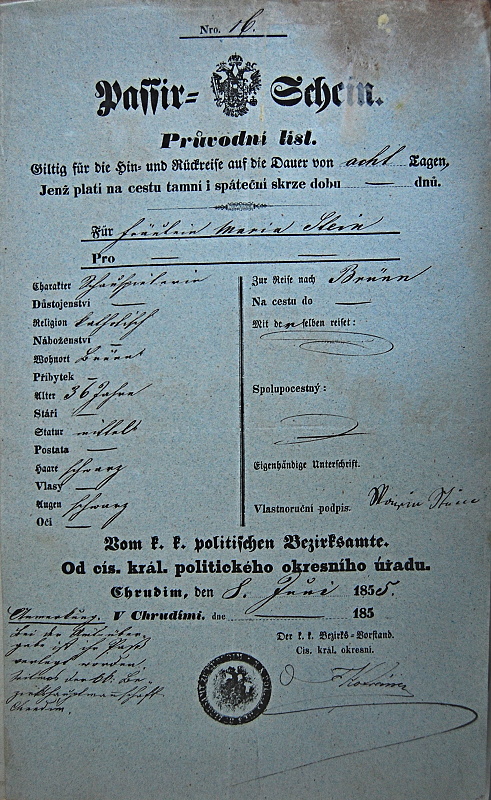 Nro. 16.
Passir- Schein.
Průwodní list.
Giltig für die Hin- und Rückreise auf die Dauer von acht Tagen,
Jenž platí na cestu tamní i spáteční skrze dobu — dnů.
Für Fräulein Maria Stein
Pro — —
Charakter Schauspielerin
Důstojenství —
Religion katholisch
Náboženství —
Wohnort Brünn
Příbytek —
Alter 36 Jahre
Stáří —
Statur mittel
Postata —
Haare schwarz
Vlasy —
Augen schwarz
Oči —
Zur Reise nach Brünn
Na cestu do —
Mit derselben reiset:
Spolupocestný:
Eigenhändige Unterschrift.
Vlastnoruční podpis. Maria Stein
Vom k. k. politischen Bezirksamte.
Od cís. král. politického okresního úřadu.
Chrudim, den 8. Juni 1855.
V Chrudimi. dne — 185
Anmerkung.
bei der
ist ihr Paß
worden,
Chrudim.
Der k. k. Bezirks-Vorstand.
Cís. král. okresní.